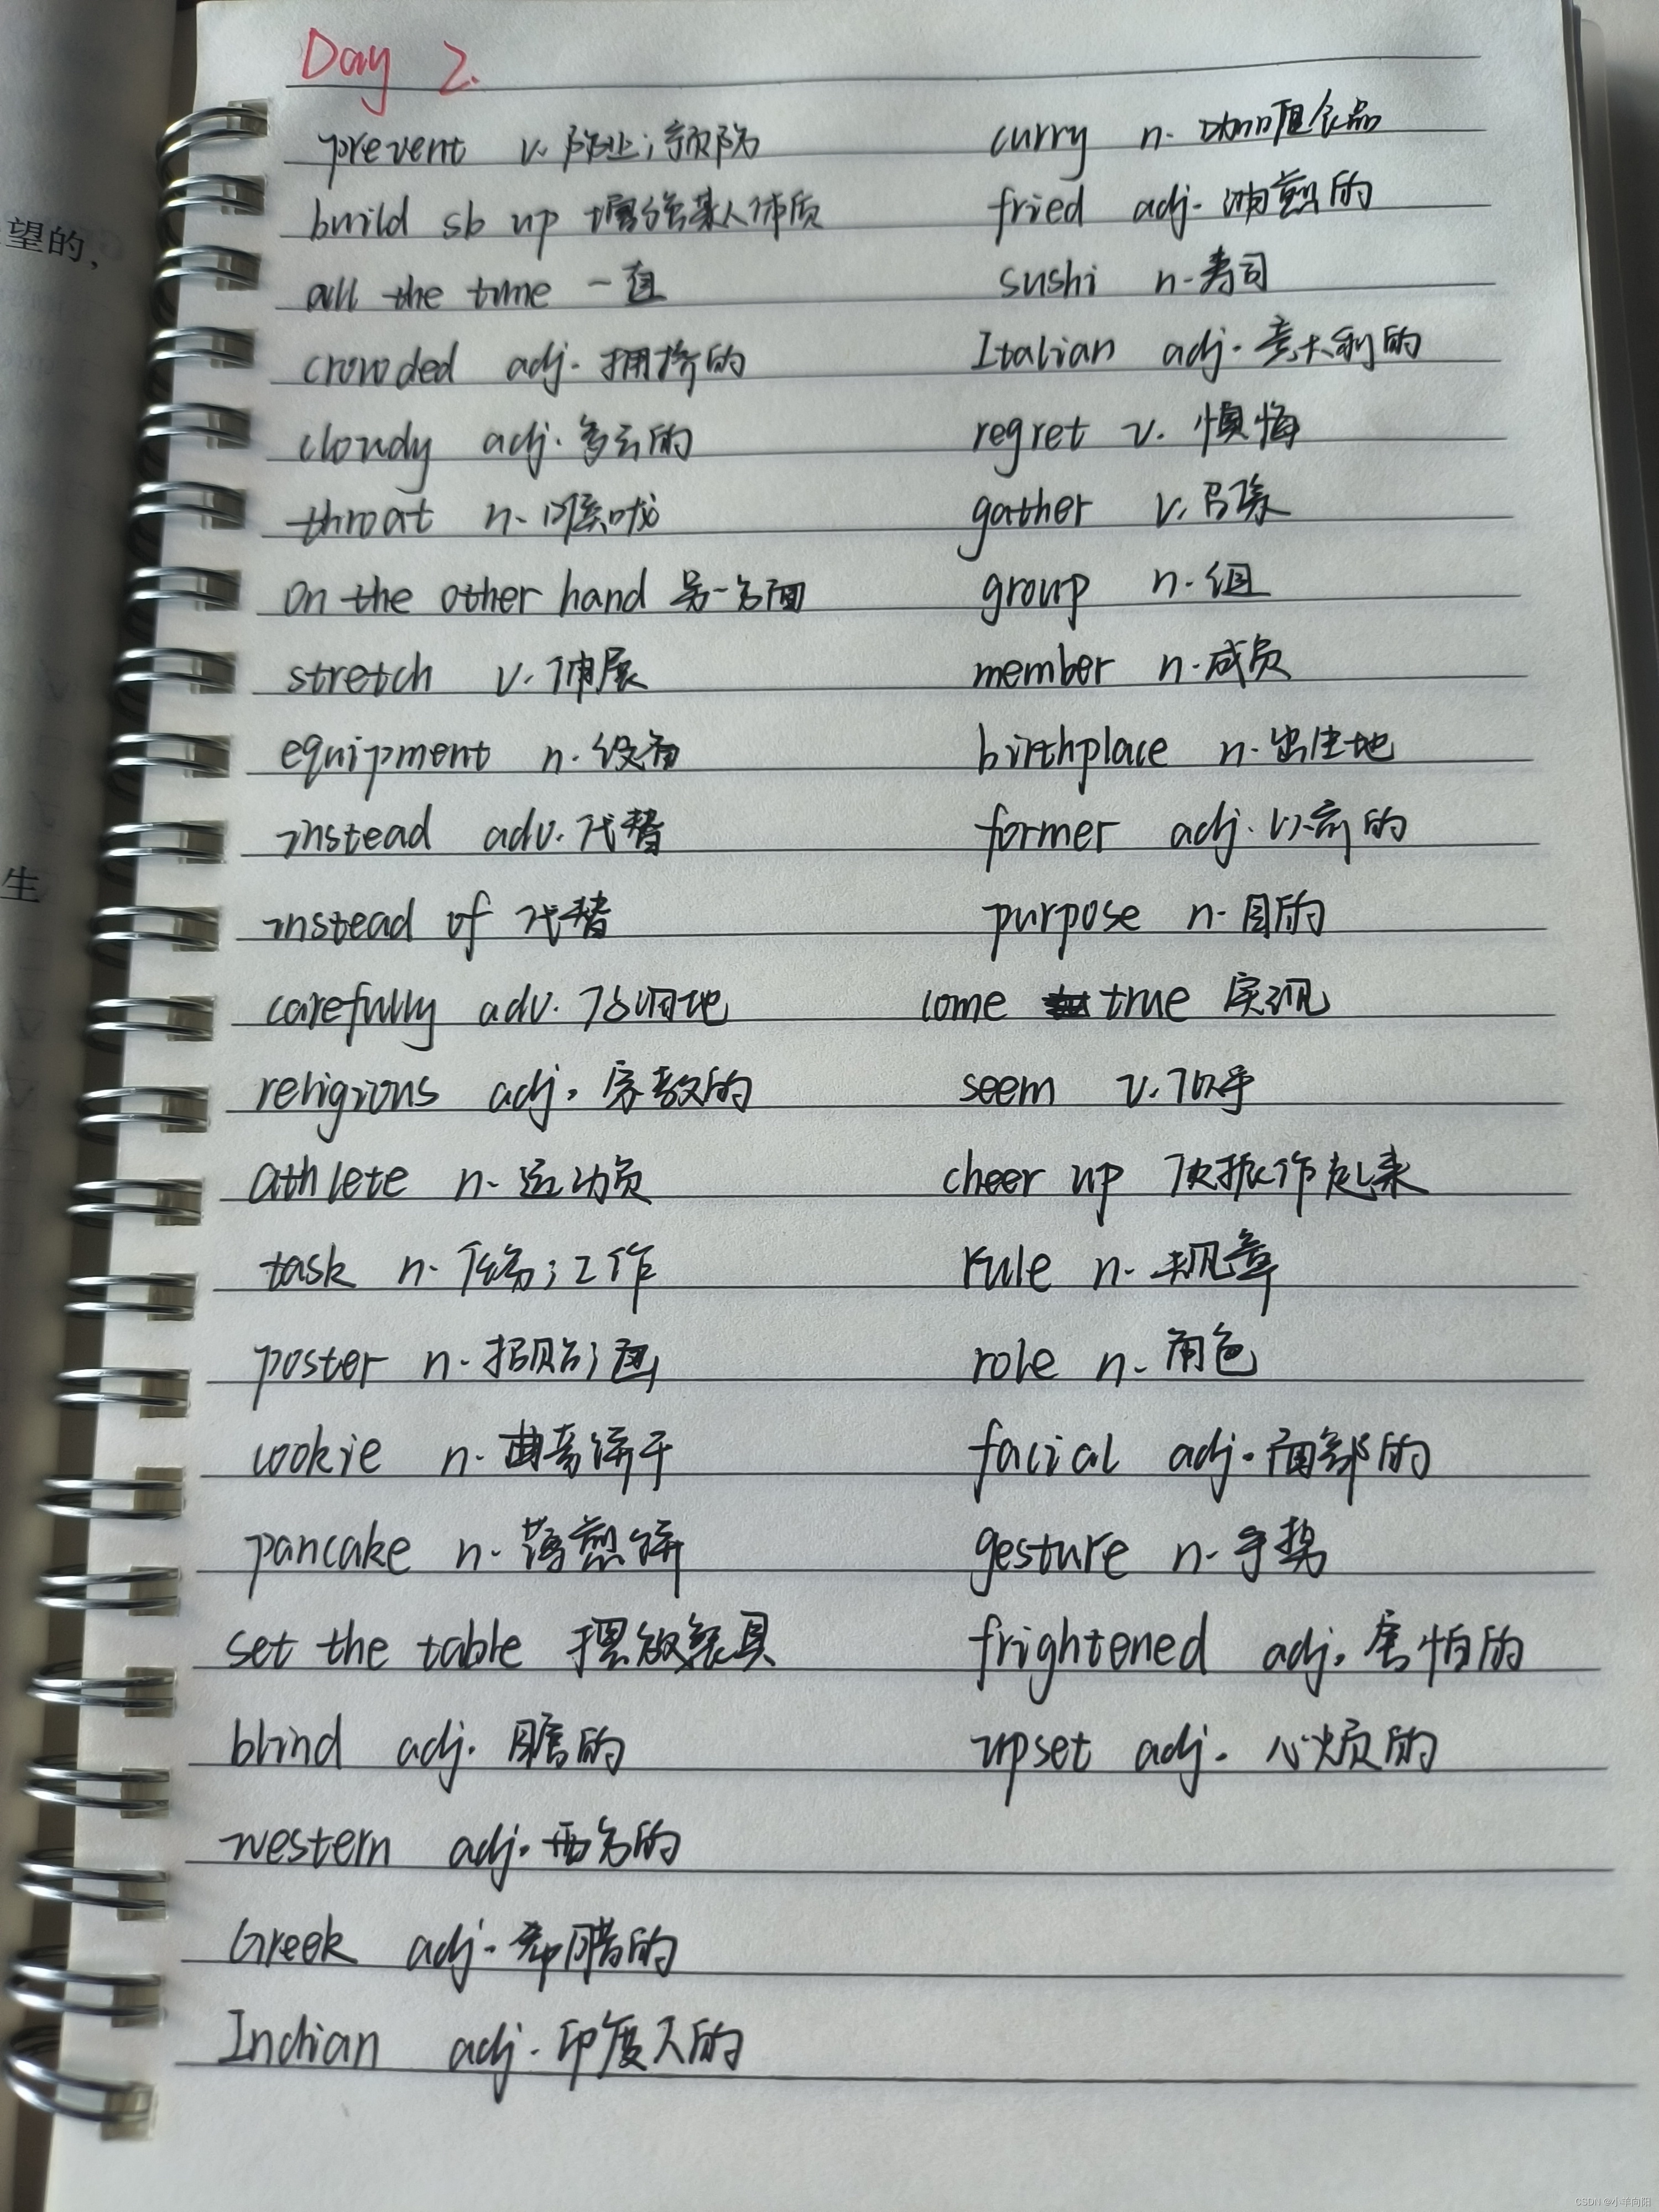 望的，
生
Day 2.
prevent v. 防止；预防
build sb up 增强某人体质
all the time 一直
crowded adj. 拥挤的
cloudy adj. 多云的
throat n. 喉咙
on the other hand 另一方面
stretch v. 伸展
equipment n. 设备
instead adv. 代替
instead of 代替
carefully adv. 仔细地
religious adj. 宗教的
athlete n. 运动员
task n. 任务；工作
poster n. 招贴；画
cookie n. 曲奇饼干
pancake n. 薄煎饼
set the table 摆放餐具
blind adj. 瞎的
western adj. 西方的
Greek adj. 希腊的
Indian adj. 印度人的
curry n. 咖喱食品
fried adj. 油煎的
sushi n. 寿司
Italian adj. 意大利的
regret v. 懊悔
gather v. 召集
group n. 组
member n. 成员
birthplace n. 出生地
former adj. 以前的
purpose n. 目的
come true 实现
seem v. 似乎
cheer up 使振作起来
rule n. 规章
role n. 角色
facial adj. 面部的
gesture n. 手势
frightened adj. 害怕的
upset adj. 心烦的
CSDN @小羊向阳